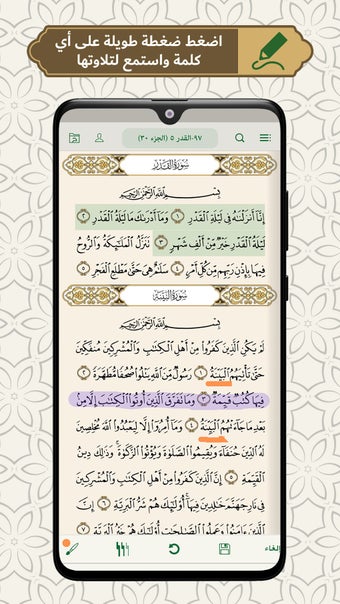 اضغط ضغطة طويلة على أي
كلمة واستمع لتلاوتها
٩٧-القدر ٥ (الجزء ٣٠)
سُورَةُ القَدۡرِ
بِسۡمِ ٱللَّهِ ٱلرَّحۡمَٰنِ ٱلرَّحِيمِ
إِنَّآ أَنزَلۡنَٰهُ فِي لَيۡلَةِ ٱلۡقَدۡرِ ١ وَمَآ أَدۡرَىٰكَ مَا لَيۡلَةُ ٱلۡقَدۡرِ ٢
لَيۡلَةُ ٱلۡقَدۡرِ خَيۡرٞ مِّنۡ أَلۡفِ شَهۡرٖ ٣ تَنَزَّلُ ٱلۡمَلَٰٓئِكَةُ وَٱلرُّوحُ
فِيهَا بِإِذۡنِ رَبِّهِم مِّن كُلِّ أَمۡرٖ ٤ سَلَٰمٌ هِيَ حَتَّىٰ مَطۡلَعِ ٱلۡفَجۡرِ ٥
سُورَةُ البَيِّنَةِ
بِسۡمِ ٱللَّهِ ٱلرَّحۡمَٰنِ ٱلرَّحِيمِ
لَمۡ يَكُنِ ٱلَّذِينَ كَفَرُواْ مِنۡ أَهۡلِ ٱلۡكِتَٰبِ وَٱلۡمُشۡرِكِينَ مُنفَكِّينَ
حَتَّىٰ تَأۡتِيَهُمُ ٱلۡبَيِّنَةُ ١ رَسُولٞ مِّنَ ٱللَّهِ يَتۡلُواْ صُحُفٗا مُّطَهَّرَةٗ ٢
فِيهَا كُتُبٞ قَيِّمَةٞ ٣ وَمَا تَفَرَّقَ ٱلَّذِينَ أُوتُواْ ٱلۡكِتَٰبَ إِلَّا مِنۢ
بَعۡدِ مَا جَآءَتۡهُمُ ٱلۡبَيِّنَةُ ٤ وَمَآ أُمِرُوٓاْ إِلَّا لِيَعۡبُدُواْ ٱللَّهَ مُخۡلِصِينَ
لَهُ ٱلدِّينَ حُنَفَآءَ وَيُقِيمُواْ ٱلصَّلَوٰةَ وَيُؤۡتُواْ ٱلزَّكَوٰةَۚ وَذَٰلِكَ دِينُ
ٱلۡقَيِّمَةِ ٥ إِنَّ ٱلَّذِينَ كَفَرُواْ مِنۡ أَهۡلِ ٱلۡكِتَٰبِ وَٱلۡمُشۡرِكِينَ
فِي نَارِ جَهَنَّمَ خَٰلِدِينَ فِيهَآۚ أُوْلَٰٓئِكَ هُمۡ شَرُّ ٱلۡبَرِيَّةِ ٦ إِنَّ
ٱلَّذِينَ ءَامَنُواْ وَعَمِلُواْ ٱلصَّٰلِحَٰتِ أُوْلَٰٓئِكَ هُمۡ خَيۡرُ ٱلۡبَرِيَّةِ ٧